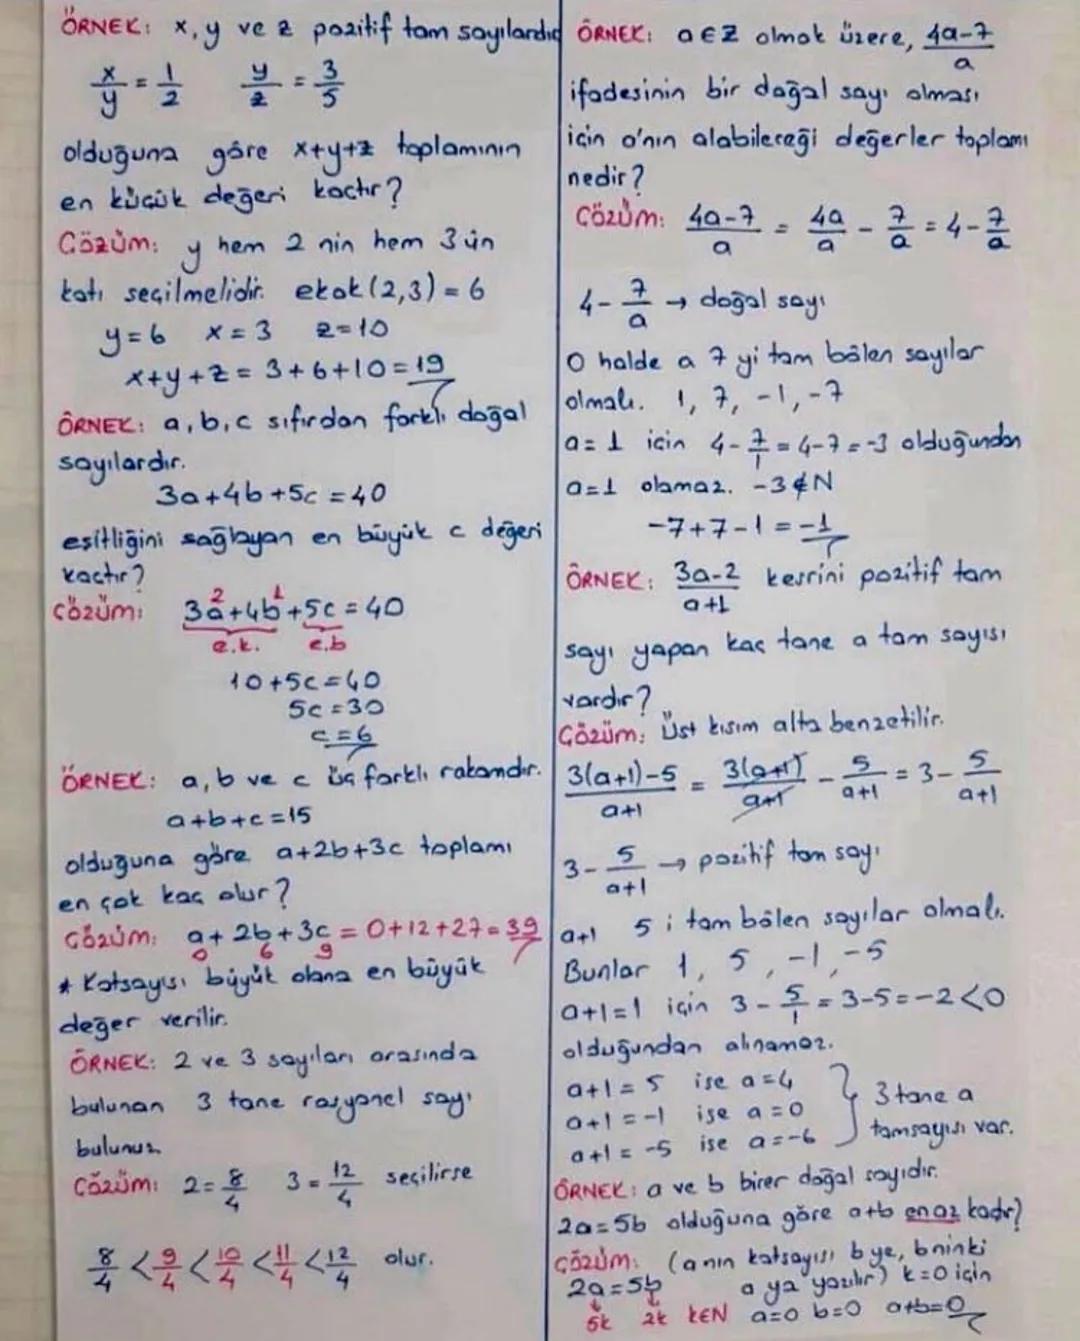 ÖRNEK: x, y ve z pozitif tam sayılardır
x/y = 1/2   y/z = 3/5
olduğuna göre x+y+z toplamının
en küçük değeri kaçtır?
Çözüm: y hem 2 nin hem 3 ün
katı seçilmelidir. ekok(2,3) = 6
y=6 x=3 z=10
x+y+z = 3+6+10=19
ÖRNEK: a,b,c sıfırdan farklı doğal
sayılardır.
3a+4b+5c=40
eşitliğini sağlayan en büyük c değeri
kaçtır?
2 1
Çözüm: 3a+4b+5c=40
e.k. e.b
10+5c=40
5c=30
c=6
ÖRNEK: a,b ve c üç farklı rakamdır.
a+b+c=15
olduğuna göre a+2b+3c toplamı
en çok kaç olur?
Çözüm: a+2b+3c = 0+12+27=39
0 6 9
* Katsayısı büyük olana en büyük
değer verilir.
ÖRNEK: 2 ve 3 sayıları arasında
bulunan 3 tane rasyonel sayı
bulunuz
Çözüm: 2=8/4 3=12/4 seçilirse
8/4 < 9/4 < 10/4 < 11/4 < 12/4 olur.
ÖRNEK: a∈Z olmak üzere, (4a-7)/a
ifadesinin bir doğal sayı olması
için a'nın alabileceği değerler toplamı
nedir?
Çözüm: (4a-7)/a = 4a/a - 7/a = 4 - 7/a
4 - 7/a → doğal sayı
O halde a 7 yi tam bölen sayılar
olmalı. 1, 7, -1, -7
a=1 için 4 - 7/1 = 4-7 = -3 olduğundan
a=1 olamaz. -3∉N
-7+7-1=-1
ÖRNEK: (3a-2)/(a+1) kesrini pozitif tam
sayı yapan kaç tane a tam sayısı
vardır?
Çözüm: Üst kısım alta benzetilir.
(3(a+1)-5)/(a+1) = 3(a+1)/(a+1) - 5/(a+1) = 3 - 5/(a+1)
3 - 5/(a+1) → pozitif tam sayı
a+1 5 i tam bölen sayılar olmalı.
Bunlar 1, 5, -1, -5
a+1=1 için 3 - 5/1 = 3-5=-2<0
olduğundan alınamaz.
a+1=5 ise a=4
a+1=-1 ise a=0
a+1=-5 ise a=-6
3 tane a
tamsayısı var.
ÖRNEK: a ve b birer doğal sayıdır.
2a=5b olduğuna göre a+b en az kaçtır?
Çözüm: (a nın katsayısı b ye, b ninki
2a=5b a ya yazılır) k=0 için
5k 2k KEN a=0 b=0 a+b=0